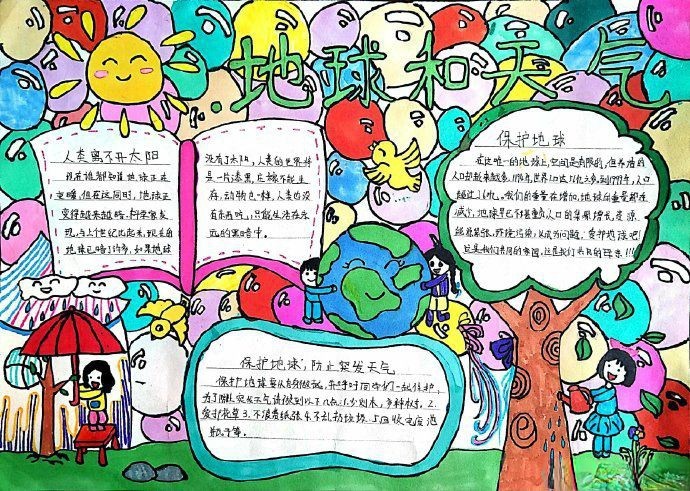 地球和天气
人类离不开太阳
现在谁都知道地球正在
变暖,但在这同时,地球正
变得越来越暗,科学家发
现,与上个世纪比起来,现在的
地球已暗了许多,如果地球
没有了太阳,人类的世界将
是一片漆黑,庄稼不能生
存,动物也一样,人类也没
有东西吃,只能生活在永
远的黑暗中。
保护地球
在这唯一的地球上,空间是有限的,但养活的
人却越来越多,
超过了6亿。我们的重量在增加,地球的重量却在
减少,地球早已不堪重负,人口的暴膨增长,资源
能源紧张,环境污染,以成为问题,爱护地球吧!
这是我们共同的家园,这是我们共同的
保护地球,防止突发天气
保护地球要从自身做起,和
为了防止突发天气请做到以下几点:1.少刻木,多种树,2.
爱护花草3.不浪费纸张4.不乱扔垃圾5.回收电应池
瓶子等。